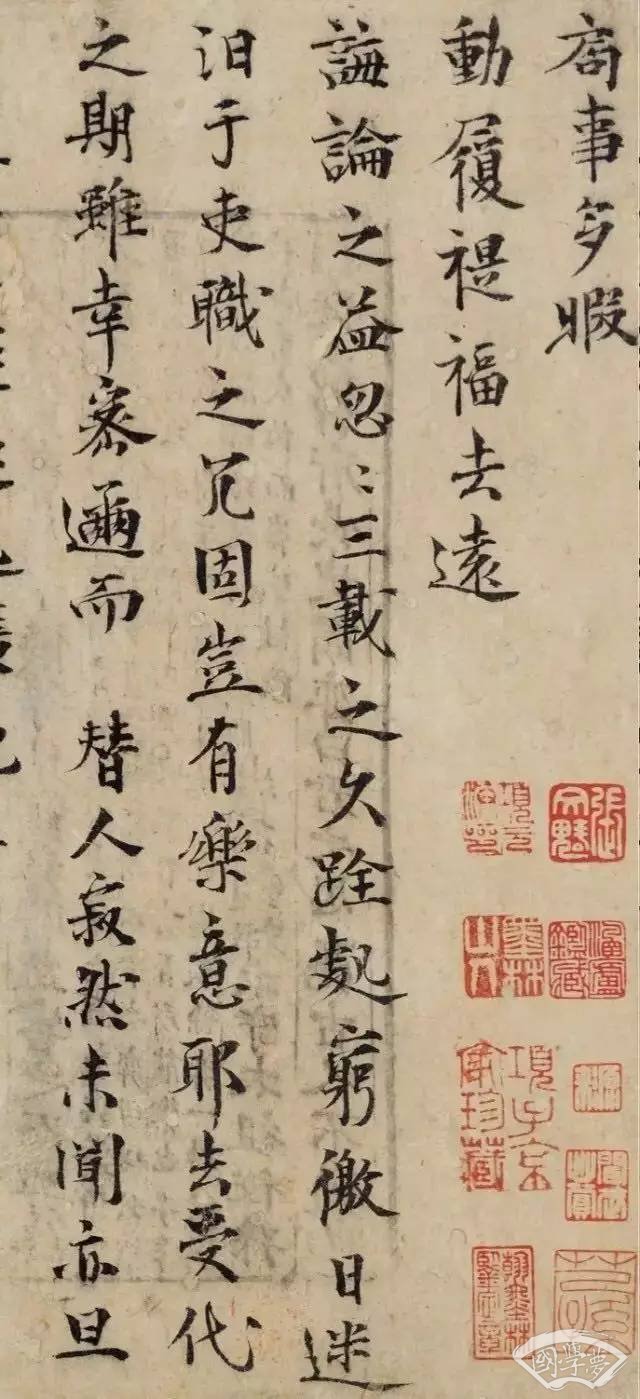 局事多暇
動履禔福去遠
誨論之益忽〻三載之久跧處窮徼日迷
汩于吏職之冗固豈有樂意耶去受代
之期雖幸密邇而 替人寂然未聞亦旦
張文魁
項元汴印
墨林山人
項子京家珍藏
國學夢